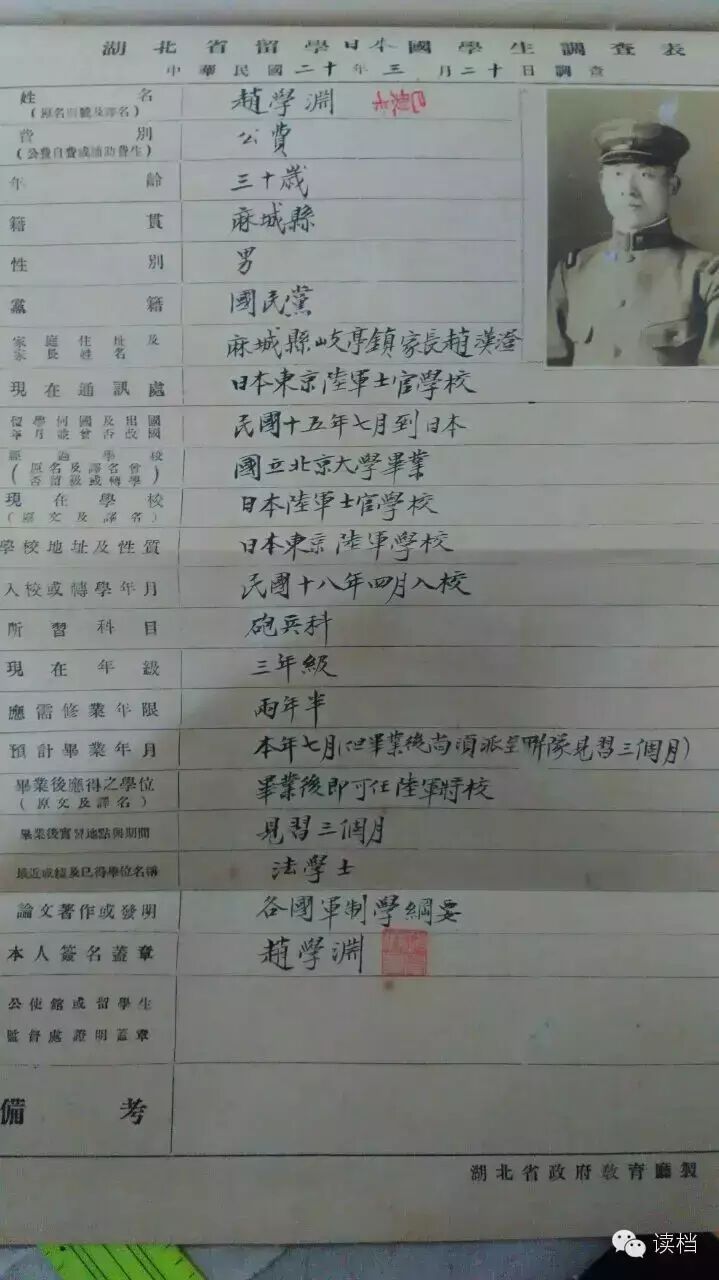 湖北省留學日本國學生調查表
中華民國二十年三月二十日調查
姓名 趙學淵
(原名別號及譯名)
費別 公費
(公費自費或補助費生)
年齡 三十歲
籍貫 麻城縣
性別 男
黨籍 國民黨
家庭住址及家長姓名 麻城縣岐亭鎮家長趙漢澄
現在通訊處 日本東京陸軍士官學校
留學何國及出國年月並曾否改國 民國十五年七月到日本
經過學校 國立北京大學畢業
(原名及譯名曾否留級或轉學)
現在學校 日本陸軍士官學校
(原文及譯名)
學校地址及性質 日本東京陸軍學校
入校或轉學年月 民國十八年四月入校
所習科目 砲兵科
現在年級 三年級
應需修業年限 兩年半
預計畢業年月 本年七月(但畢業後尚須派至聯隊見習三個月)
畢業後應得之學位 畢業後即可任陸軍將校
(原文及譯名)
畢業後實習地點與期間 見習三個月
最近成績及已得學位名稱 法學士
論文著作或發明 各國軍制學綱要
本人簽名蓋章 趙學淵
公使館或留學生
監督處證明蓋章
備考
湖北省政府教育廳製
读档